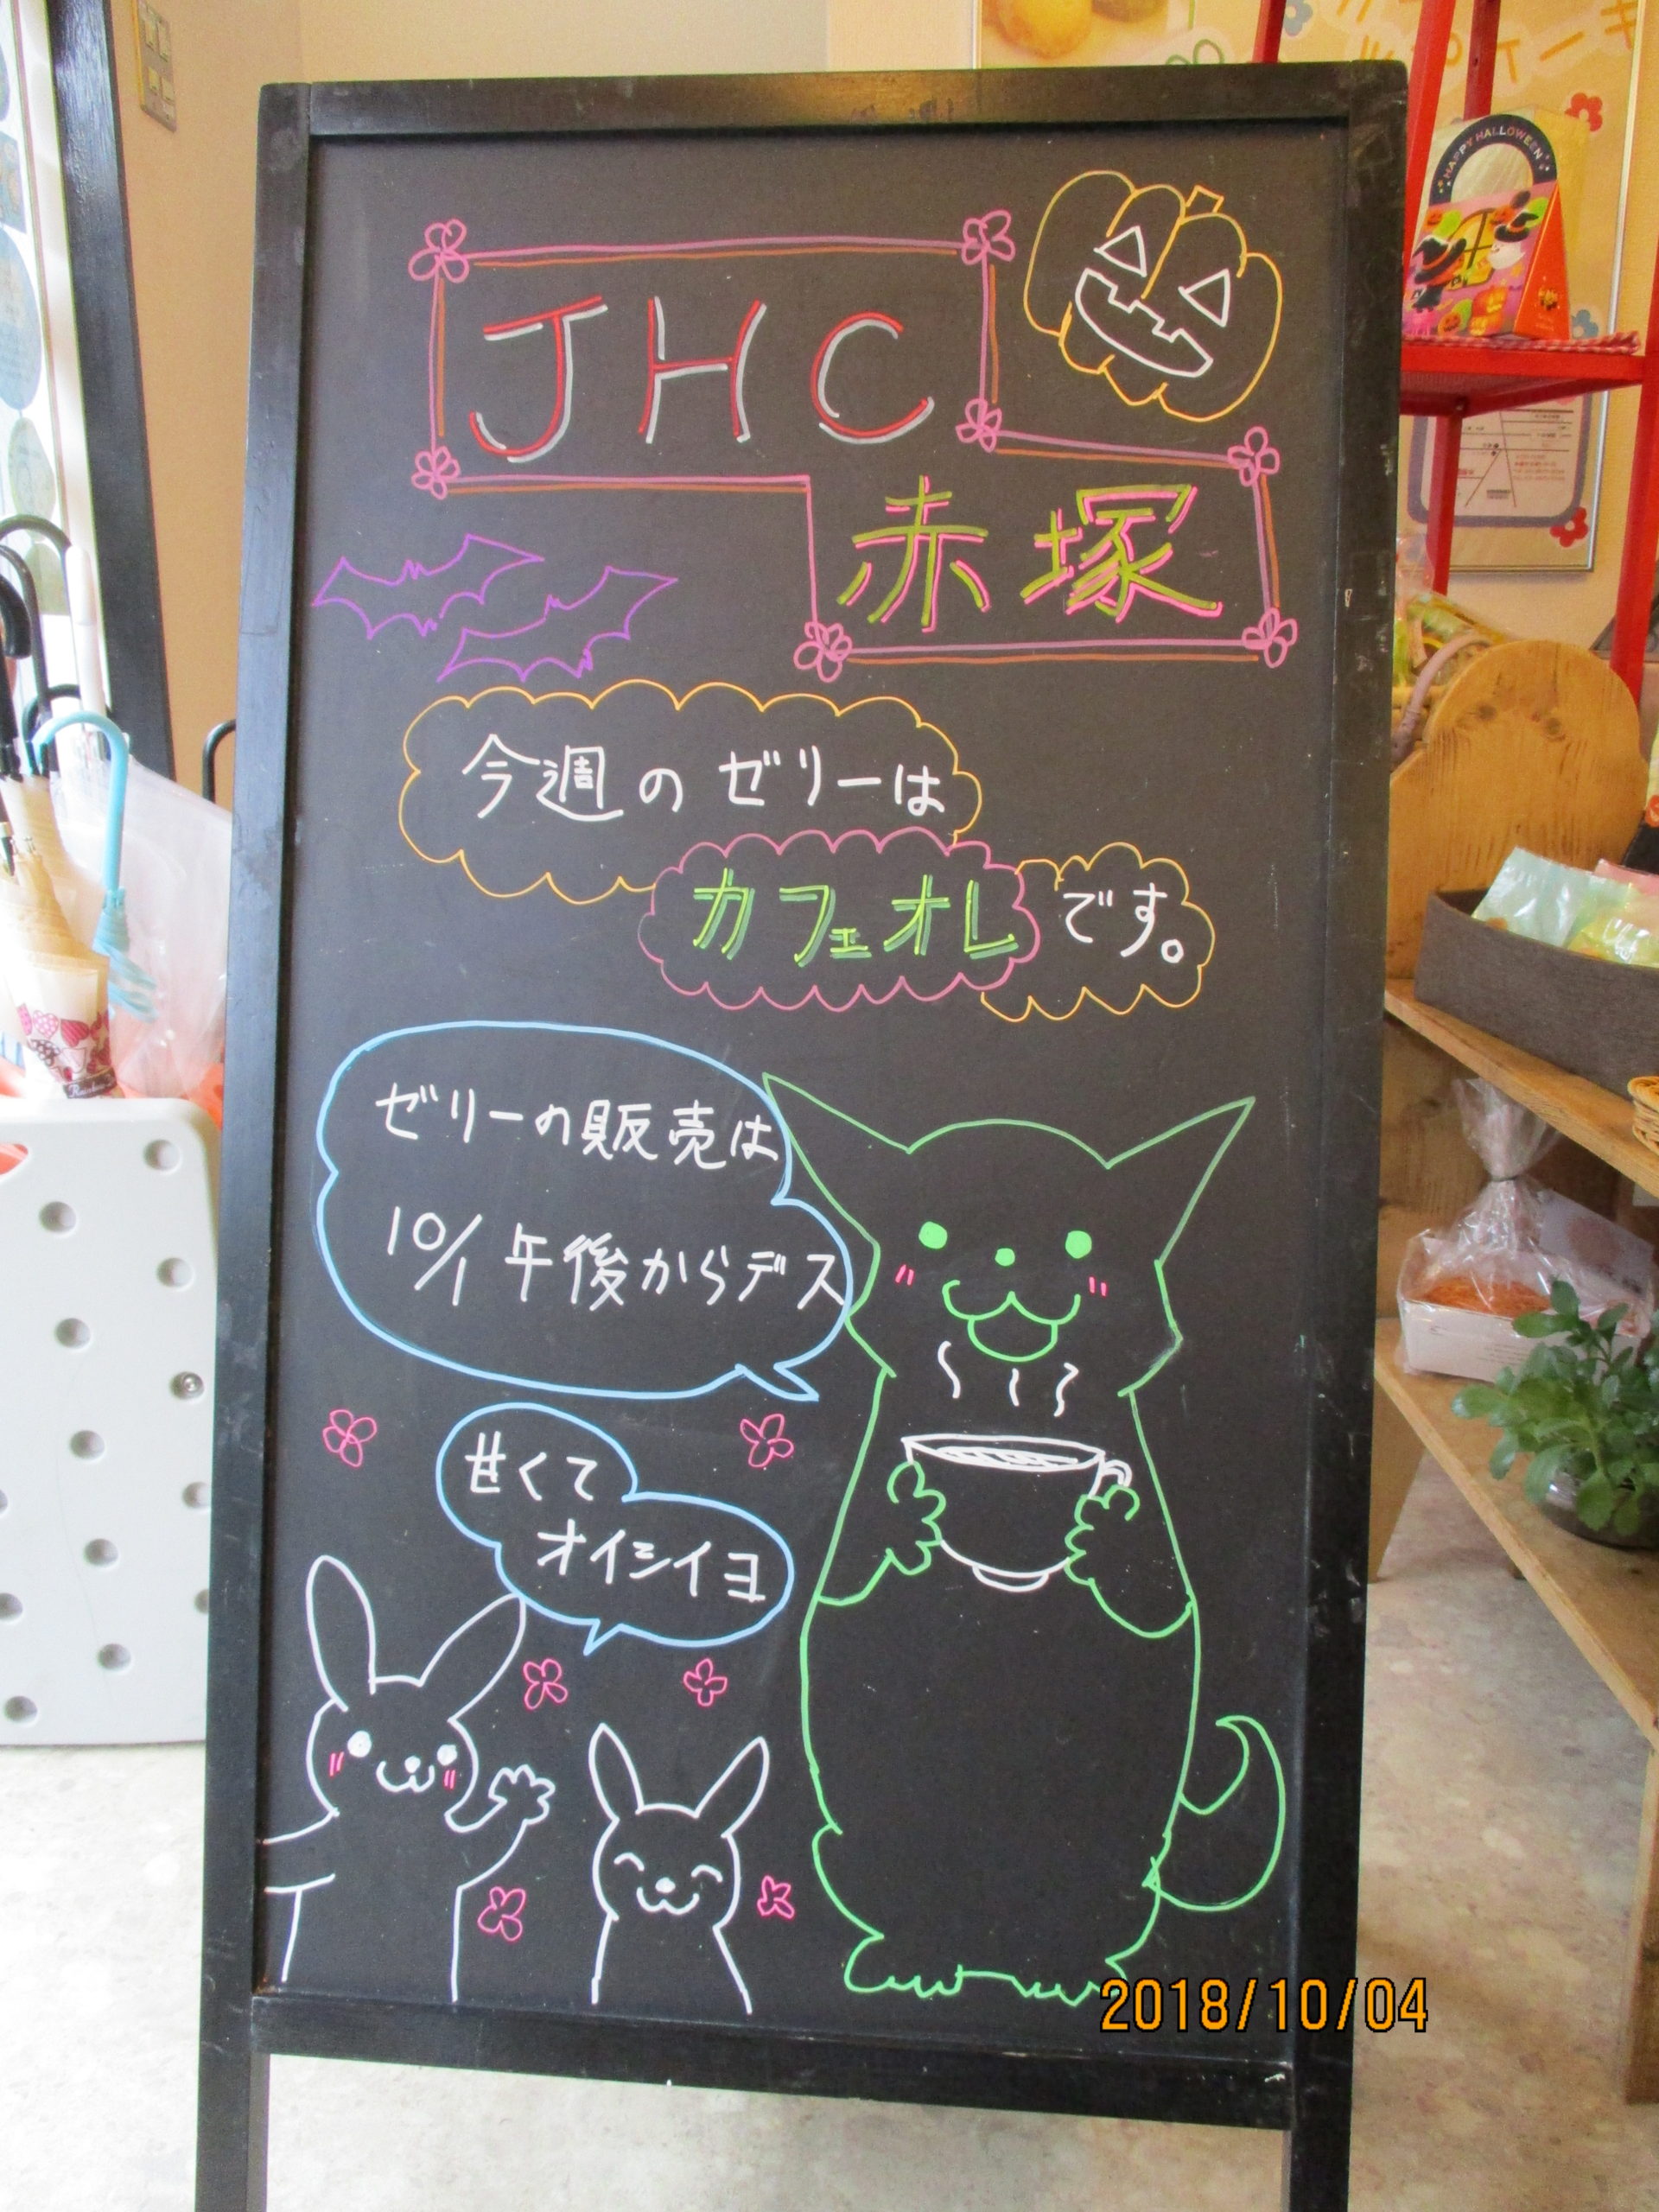 JHC
赤塚
今週のゼリーは
カフェオレです。
ゼリーの販売は
10/1 午後からデス
甘くて
オイシイヨ
HAPPY HALLOWEEN
2018/10/04